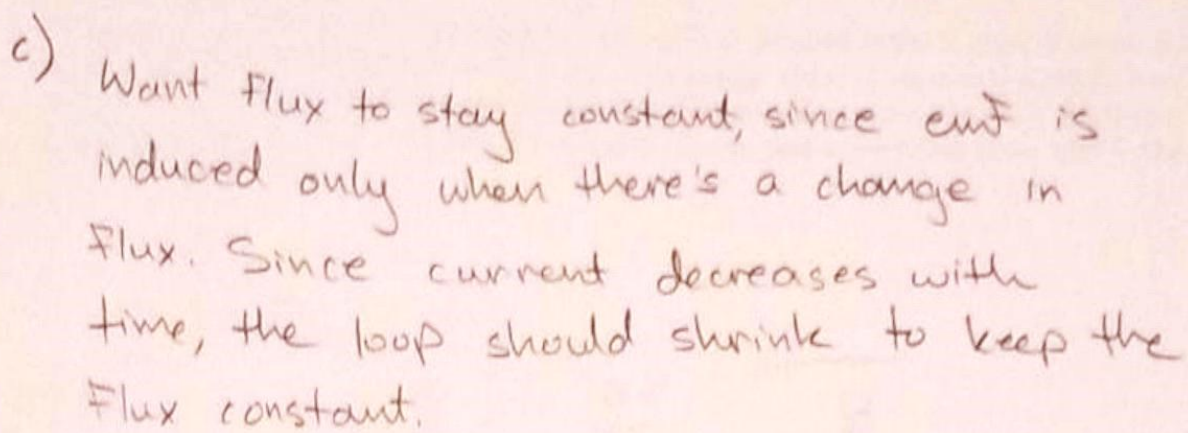 c) Want flux to stay constant, since emf is
induced only when there's a change in
flux. Since current decreases with
time, the loop should shrink to keep the
flux constant.